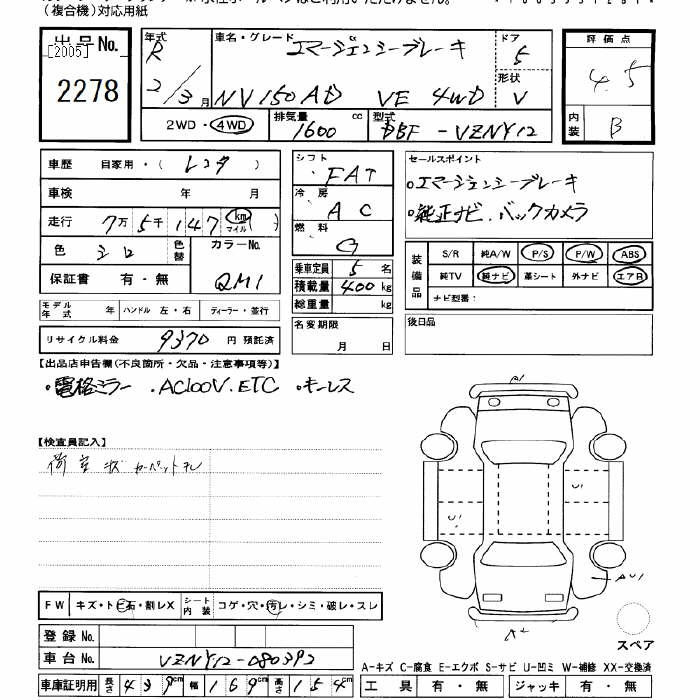 (複合機)対応用紙
出品No.
[2005]
2278
年式
R
2/3月
車名・グレード
エマージェンシーブレーキ
NV150AD VE 4WD
ドア
5
形状
V
評価点
4.5
内装
B
2WD・4WD
排気量 cc
1600
型式
DBF-VZNY12
車歴 自家用・(レンタ)
車検 年 月
走行 7万5千147 km マイル
色 シロ
色替
カラーNo.
QM1
保証書 有・無
モデル年式 年 ハンドル 左・右 ディーラー・並行
リサイクル料金 9370 円 預託済
シフト
FAT
冷房
AC
燃料
G
乗車定員 5 名
積載量 400 kg
総重量 kg
名変期限
月 日
セールスポイント
・エマージェンシーブレーキ
・純正ナビ、バックカメラ
装備品
S/R 純A/W P/S P/W ABS
純TV 純ナビ 革シート 外ナビ エアB
ナビ型番:
後日品
【出品店申告欄(不良箇所・欠品・注意事項等)】
・電格ミラー ・AC100V.ETC ・キーレス
【検査員記入】
荷室 カーペット
FW キズ・トビ石・割レX シート内装 コゲ・穴・汚レ・シミ・破レ・スレ
登録No.
車台No. VZNY12-080392
車庫証明用 長さ 439cm 幅 169cm 高さ 154cm
A1
U1
U1
AU1
A2
スペア
A-キズ C-腐食 E-エクボ S-サビ U-凹ミ W-補修 XX-交換済
工具 有・無 ジャッキ 有・無